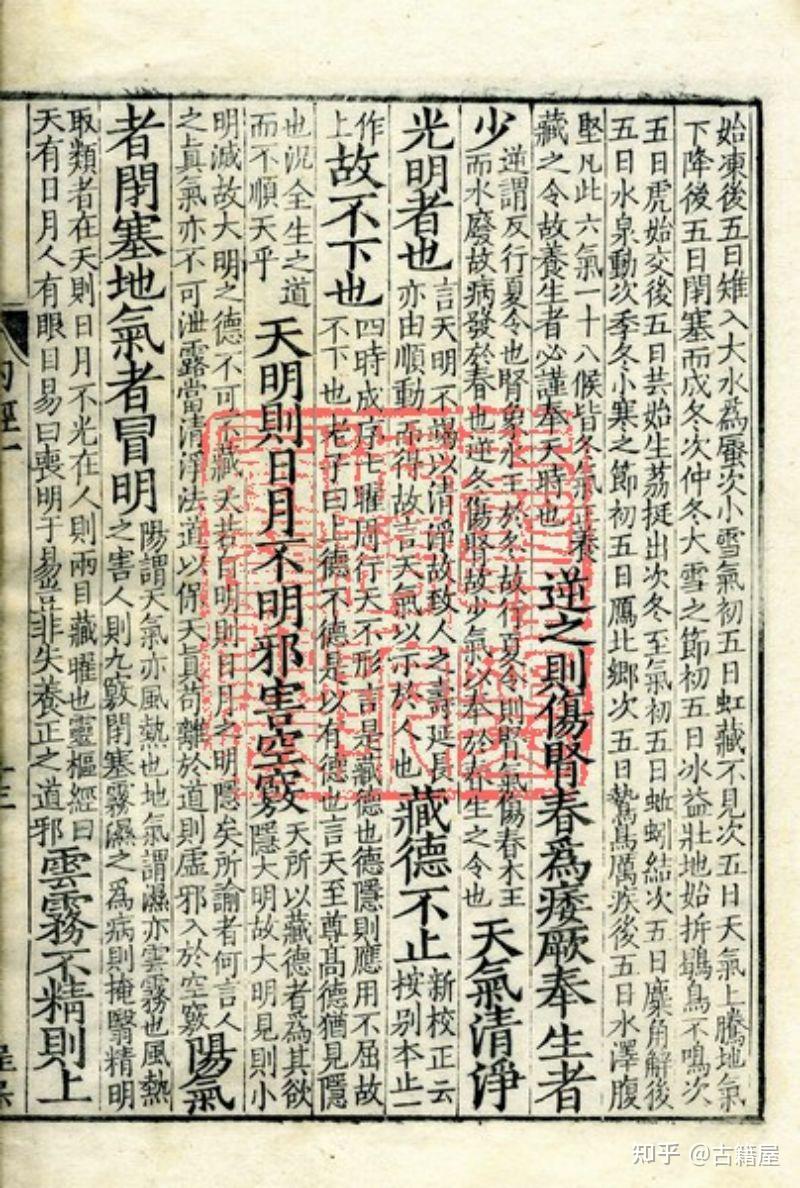 始凍後五日雉入大水爲蜃次小雪氣初五日虹藏不見次五日天氣上騰地氣
下降後五日閉塞而成冬次仲冬大雪之節初五日冰益壯地始坼鶡鳥不鳴次
五日虎始交後五日芸始生荔挺出次冬至氣初五日蚯蚓結次五日麋角解後
五日水泉動次季冬小寒之節初五日鴈北鄉次五日鷙鳥厲疾後五日水澤腹
堅凡此六氣一十八候皆冬氣正養
藏之令故養生者必謹奉天時也
逆之則傷腎春爲痿厥奉生者
少
逆謂反行夏令也腎象水王於冬故行夏令則腎氣傷春木王
而水廢故病發於春也逆冬傷腎故少氣以奉於春生之令也
天氣清淨
光明者也
言天明不竭以清淨故致人之壽延長
亦由順動而得故言天氣以示於人也
藏德不止
新校正云
按別本止一
作
上
故不下也
四時成序七曜周行天不形言是藏德也德隱則應用不屈故
不下也老子曰上德不德是以有德也言天至尊高德猶見隱
也況全生之道
而不順天乎
天明則日月不明邪害空竅
天所以藏德者爲其欲
隱大明故大明見則小
明滅故大明之德不可不藏天若自明則日月之明隱矣所諭者何言人
之眞氣亦不可泄露當清淨法道以保天眞苟離於道則虛邪入於空竅
陽氣
者閉塞地氣者冒明
陽謂天氣亦風熱也地氣謂濕亦雲霧也風熱
之害人則九竅閉塞霧濕之爲病則掩翳精明
取類者在天則日月不光在人則兩目藏曜也靈樞經曰
天有日月人有眼目易曰喪明于易豈非失養正之道邪
雲霧不精則上
知乎 @古籍屋